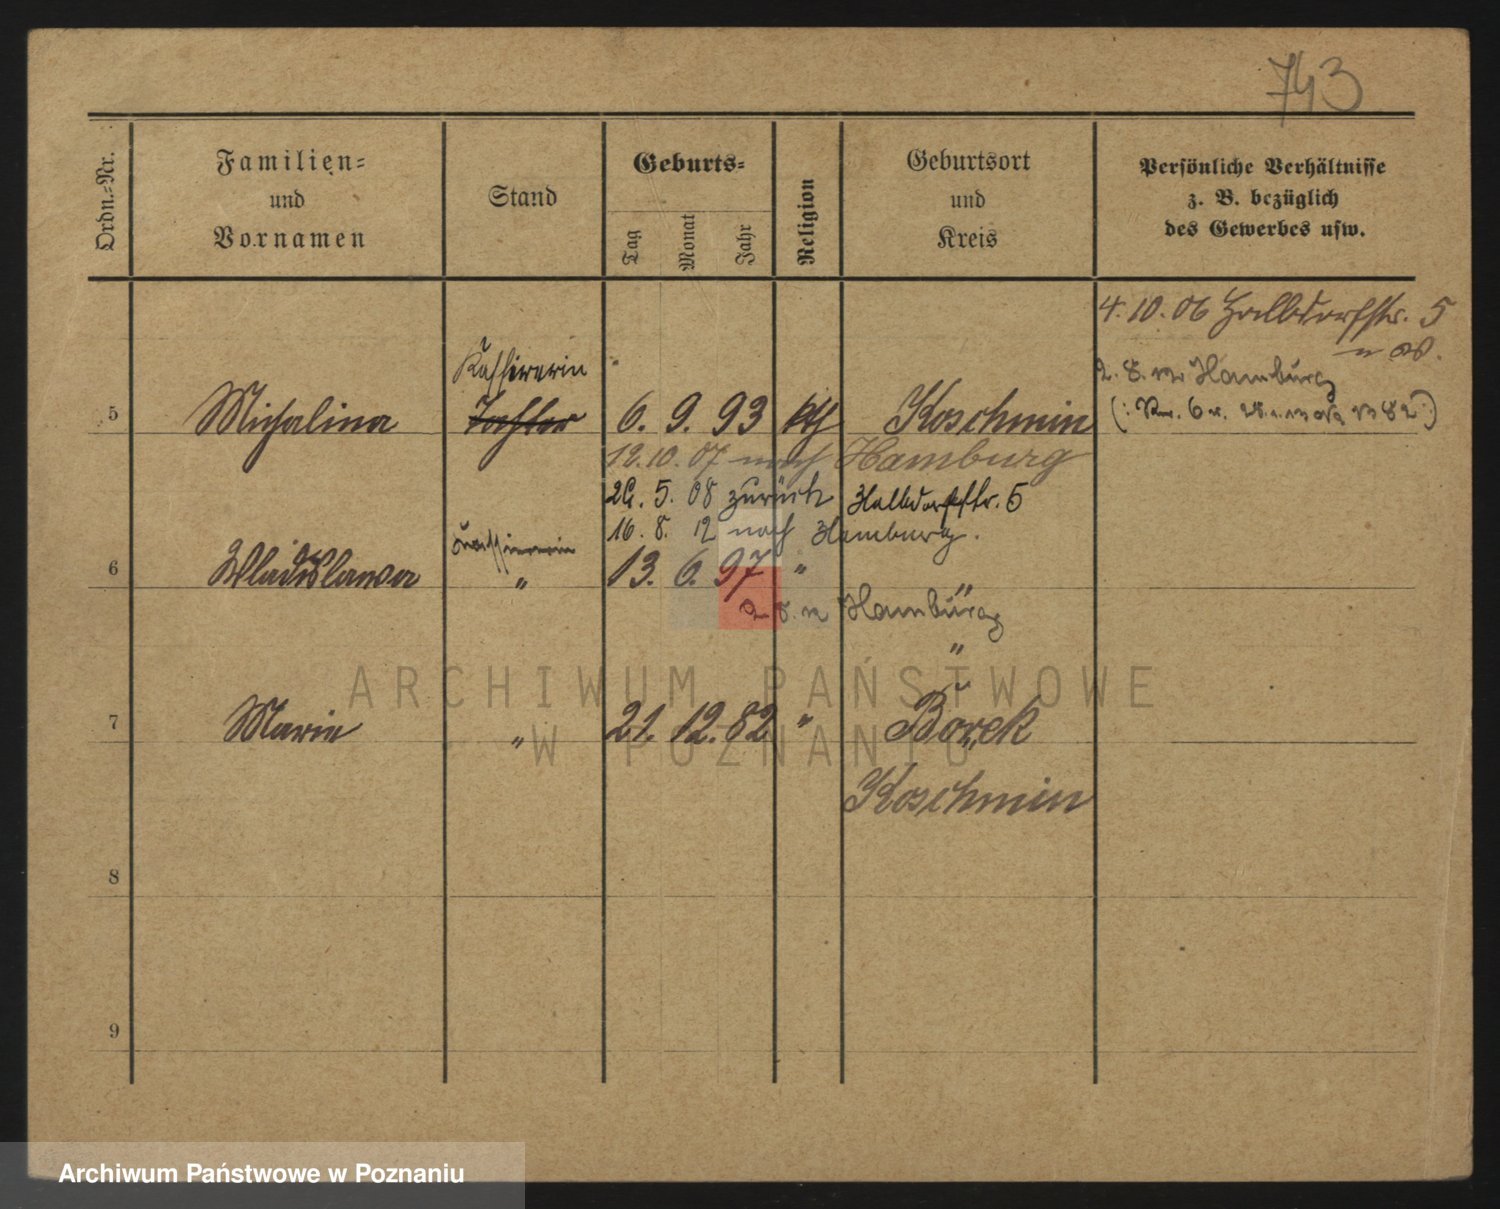 743
Ordn.-Nr.
Familien-
und
Vornamen
Stand
Geburts-
Tag
Monat
Jahr
Religion
Geburtsort
und
Kreis
Persönliche Verhältnisse
z. B. bezüglich
des Gewerbes usw.
4. 10. 06 Halbdorfstr. 5
2. 8. Hamburg
Kassirerin
5 Michalina Tochter 6. 9. 93 kth Koschmin
12. 10. 07 nach Hamburg
26. 5. 08 zurück Halbdorfstr. 5
16. 8. 12 nach Hamburg.
6 Wladislawa " 13. 6. 97 " "
2. 8. 12 Hamburg
"
7 Marie " 21. 12. 82 " Borek
Koschmin
8
9
ARCHIWUM PAŃSTWOWE
W POZNANIU
Archiwum Państwowe w Poznaniu